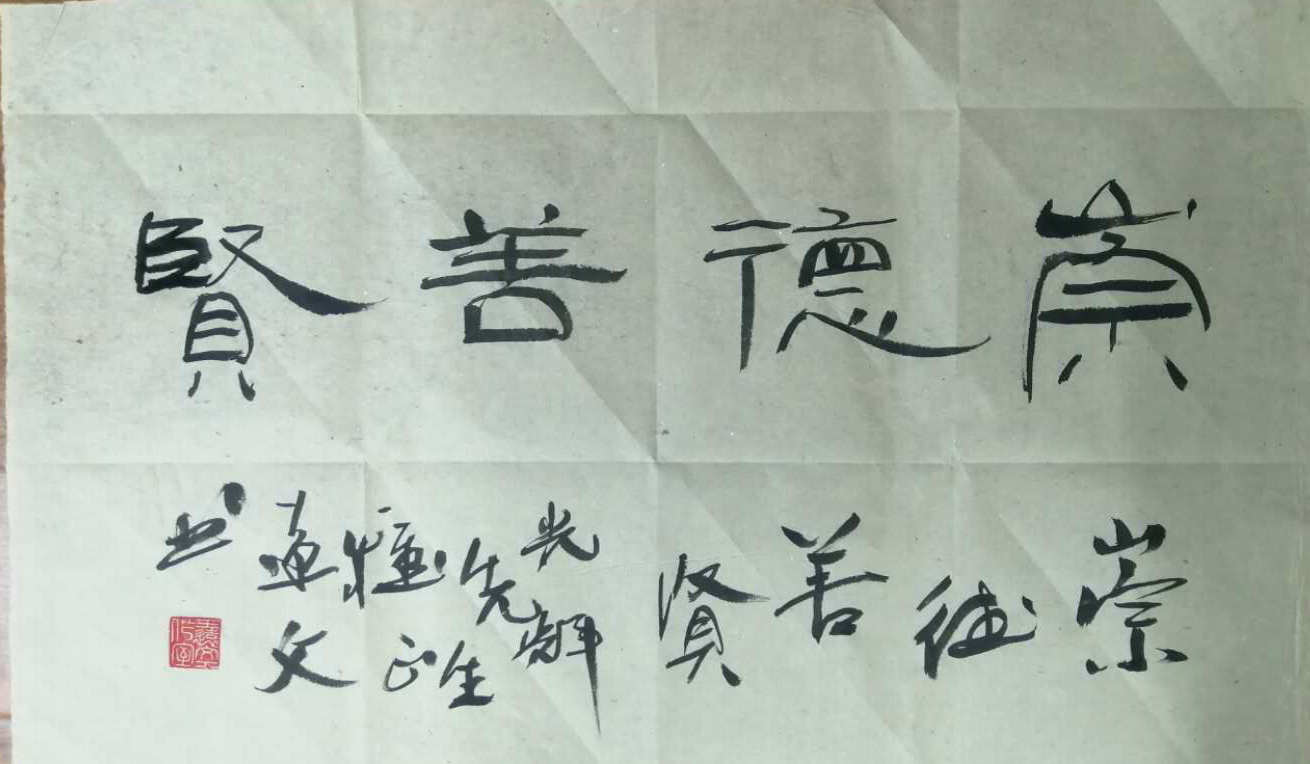 崇德善賢
崇德善贤
光辉
先生
正
文
书